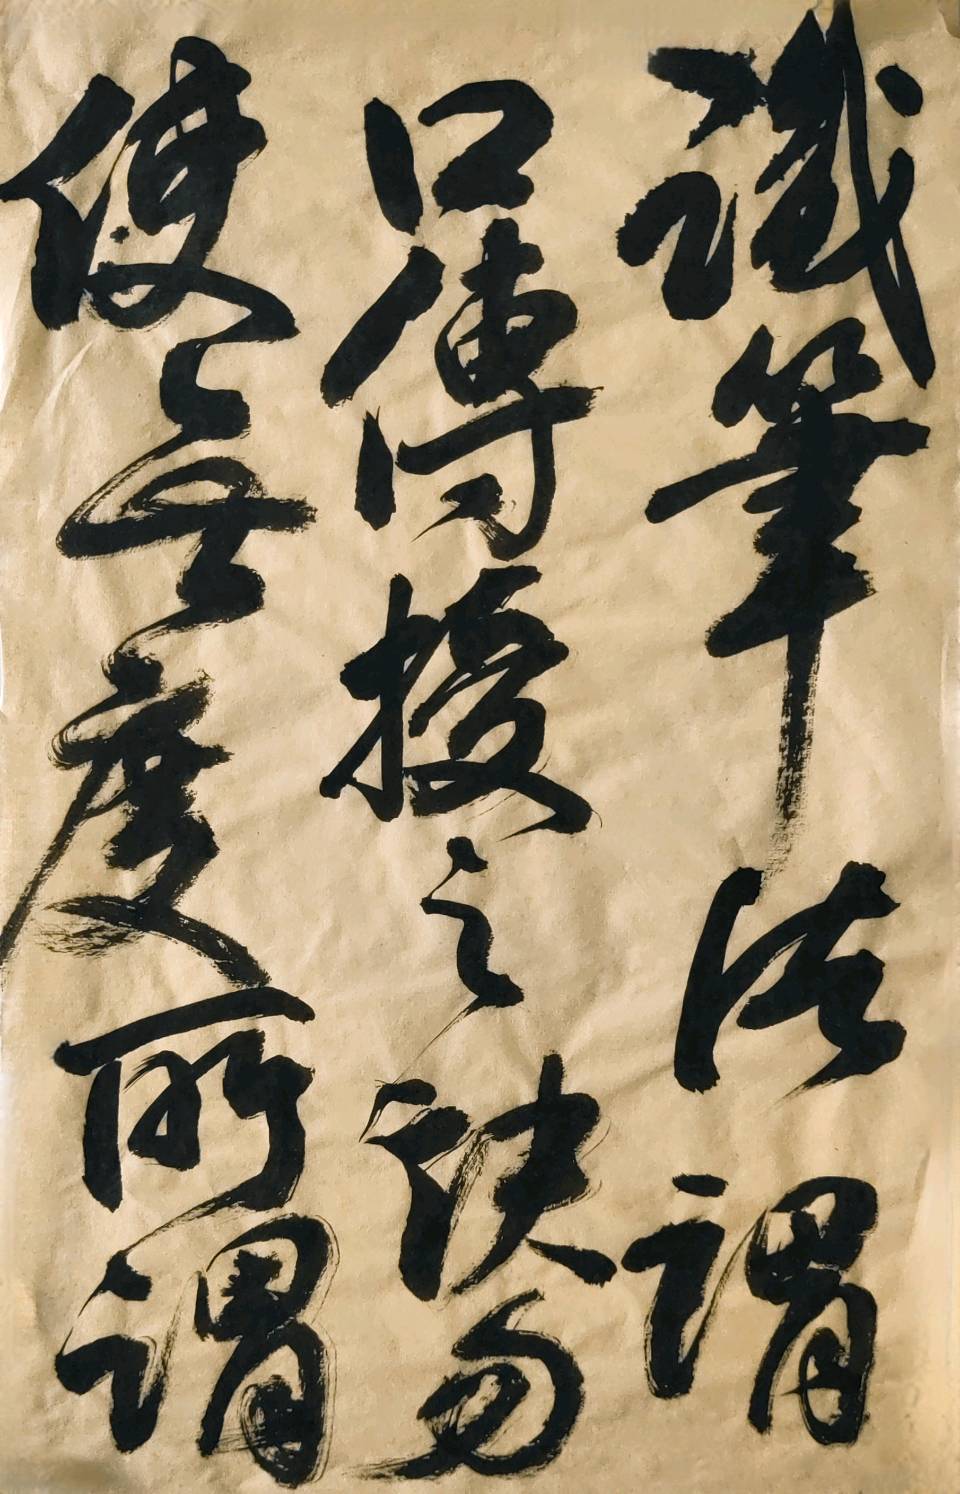 識筆法謂
口傳授之訣勿
使無度所謂